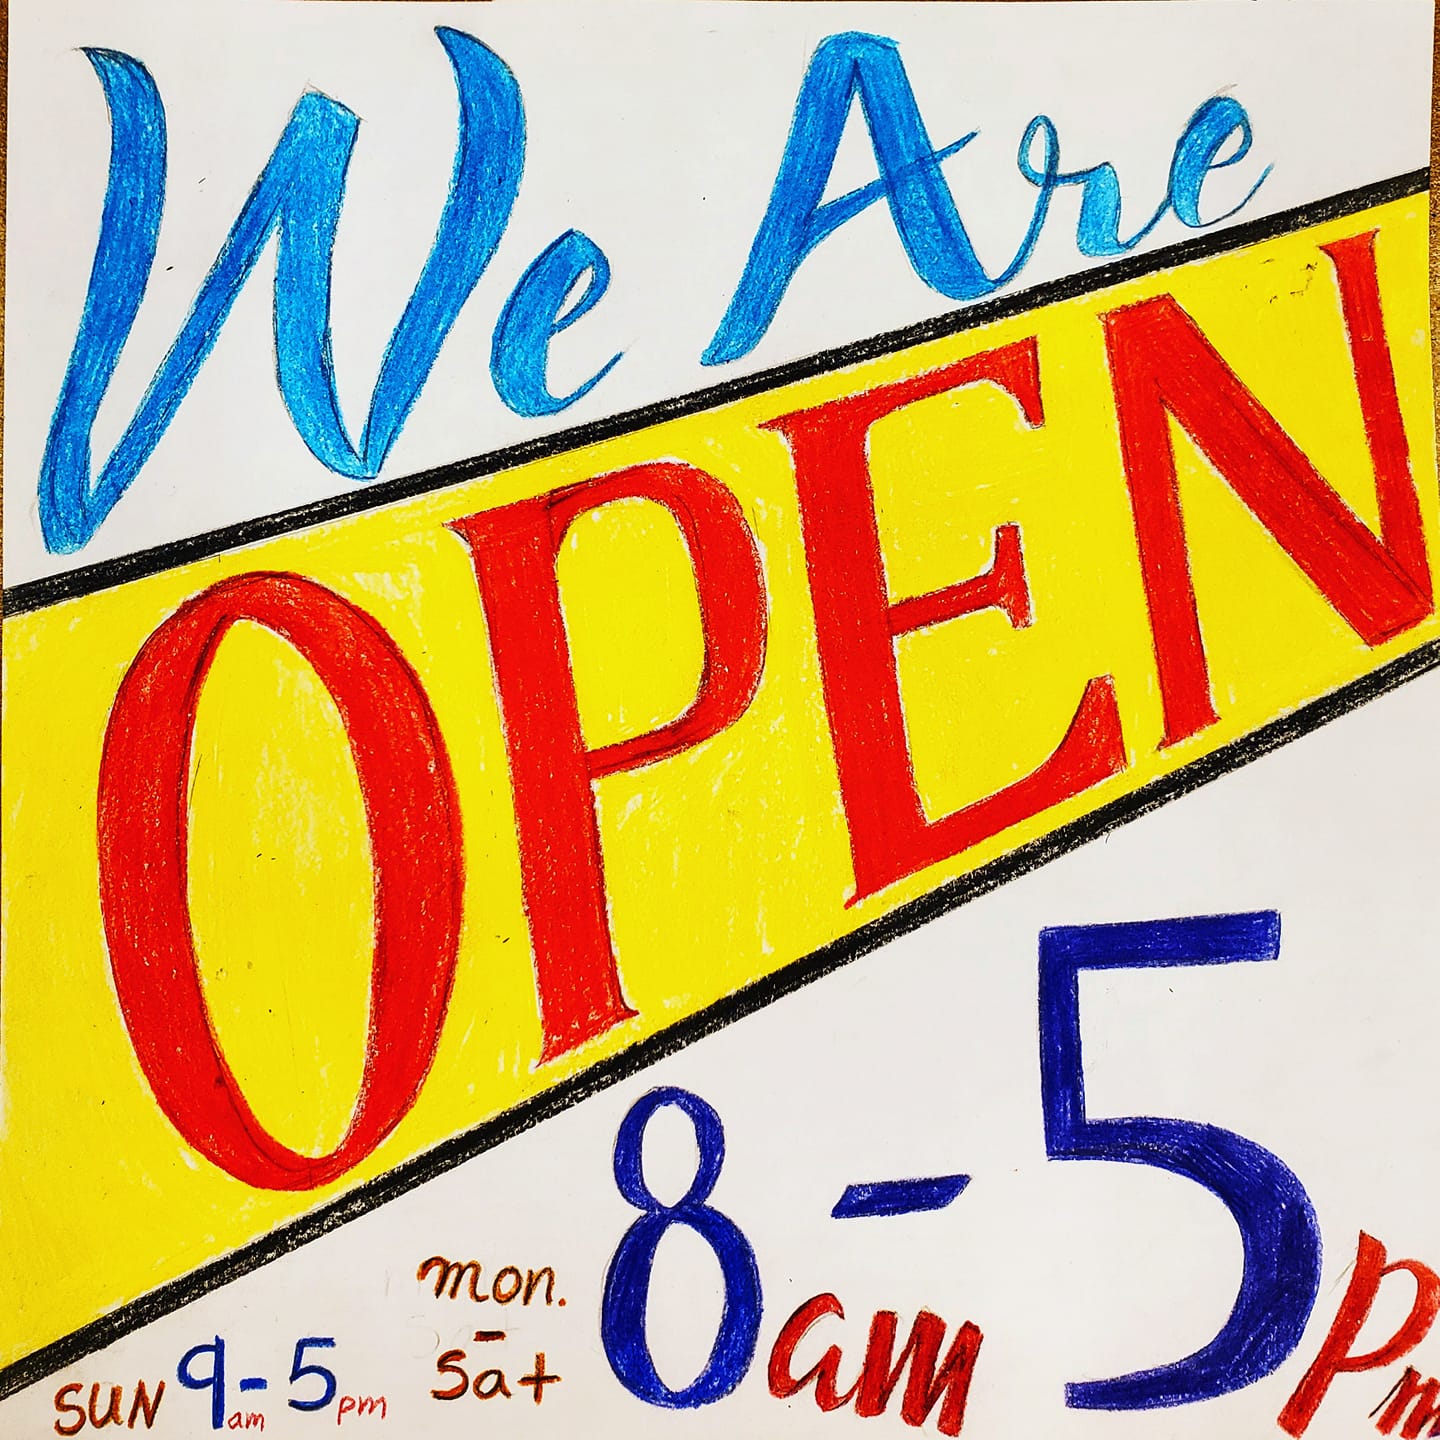 We Are
OPEN
mon.
-
Sat
8am - 5pm
SUN 9am - 5pm